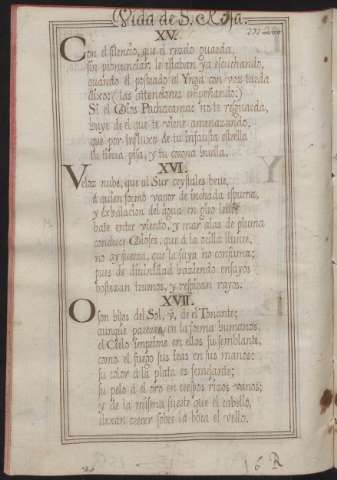 Vida de S. Rosa.
XV.
Con el silencio, que el miedo guarda,
sin pronunciar le estaban ya escuchando,
quando el postrado el Ynga con vos tarda
dixo: (las atenciones empeñando:)
Si el Dios Pachacamac no te resguarda,
huye de el que te viene amenazando,
que por influxo de tu infausta estrella
tu tierra pisa, y tu corona huella.
XVI.
Veloz nube, que al Sur crystales beve,
à quien formò vapor de inchada espuma,
y exhalacion del agua en giro leve
bate entre viento, y mar alas de pluma
conduce Dioses, que à la orilla llueve,
no ay fuerza, que la suya no consuma;
pues de divinidad haziendo ensayos
bostezan truenos, y respiran rayos.
XVII.
O son hijos del Sol, ò de el Tonante;
aunque parezcan en la forma humanos,
el Cielo imprime en ellos su semblante,
como el fuego sus iras en sus manos:
su color à la plata es semejante;
su pelo à el oro en crespos rizos vanos;
y de la misma suerte que el cabello,
dexan crecer sobre la boca el vello.
16